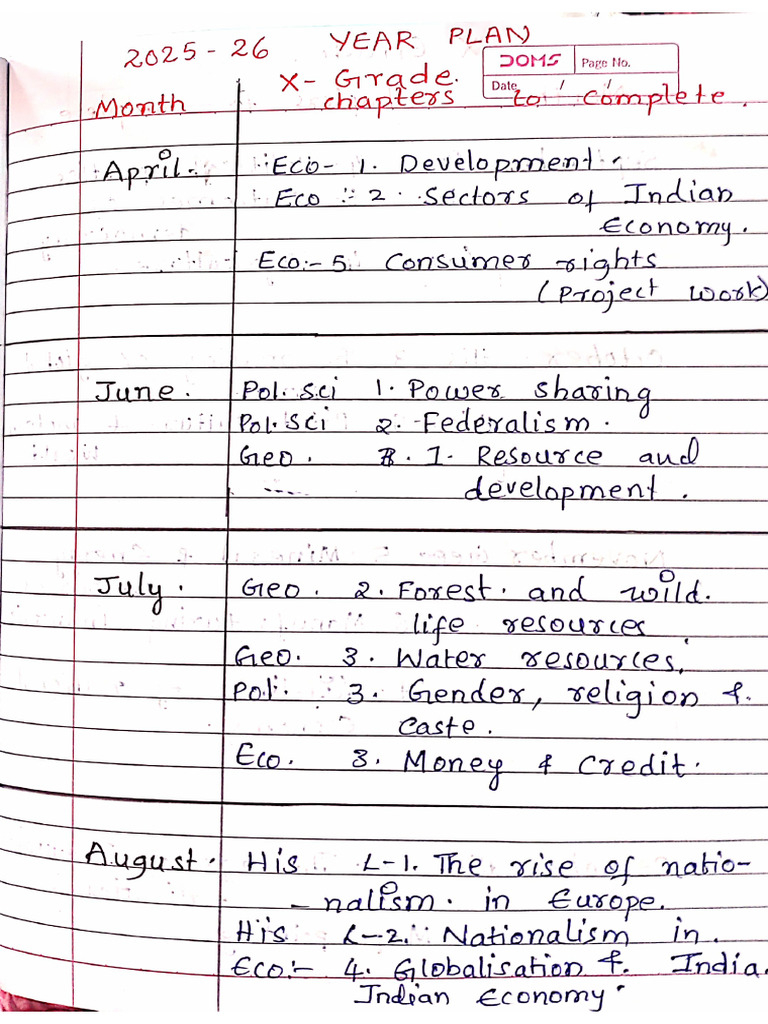 2025-26 YEAR PLAN
DOMS Page No.
X- Grade.
Date / /
Month chapters to complete.
April. Eco- 1. Development.
Eco :- 2. Sectors of Indian
Economy.
Eco:- 5. Consumer rights
(Project work)
June. Pol. sci 1. Power sharing
Pol. sci 2. Federalism.
Geo. 1. Resource and
development.
July. Geo. 2. Forest. and wild.
life resources
Geo. 3. Water resources.
Pol. 3. Gender, religion &.
caste.
Eco. 3. Money & credit.
August. His L-1. The rise of natio-
-nalism. in Europe.
His L-2. Nationalism in.
Eco:- 4. Globalisation &. India.
Indian Economy.